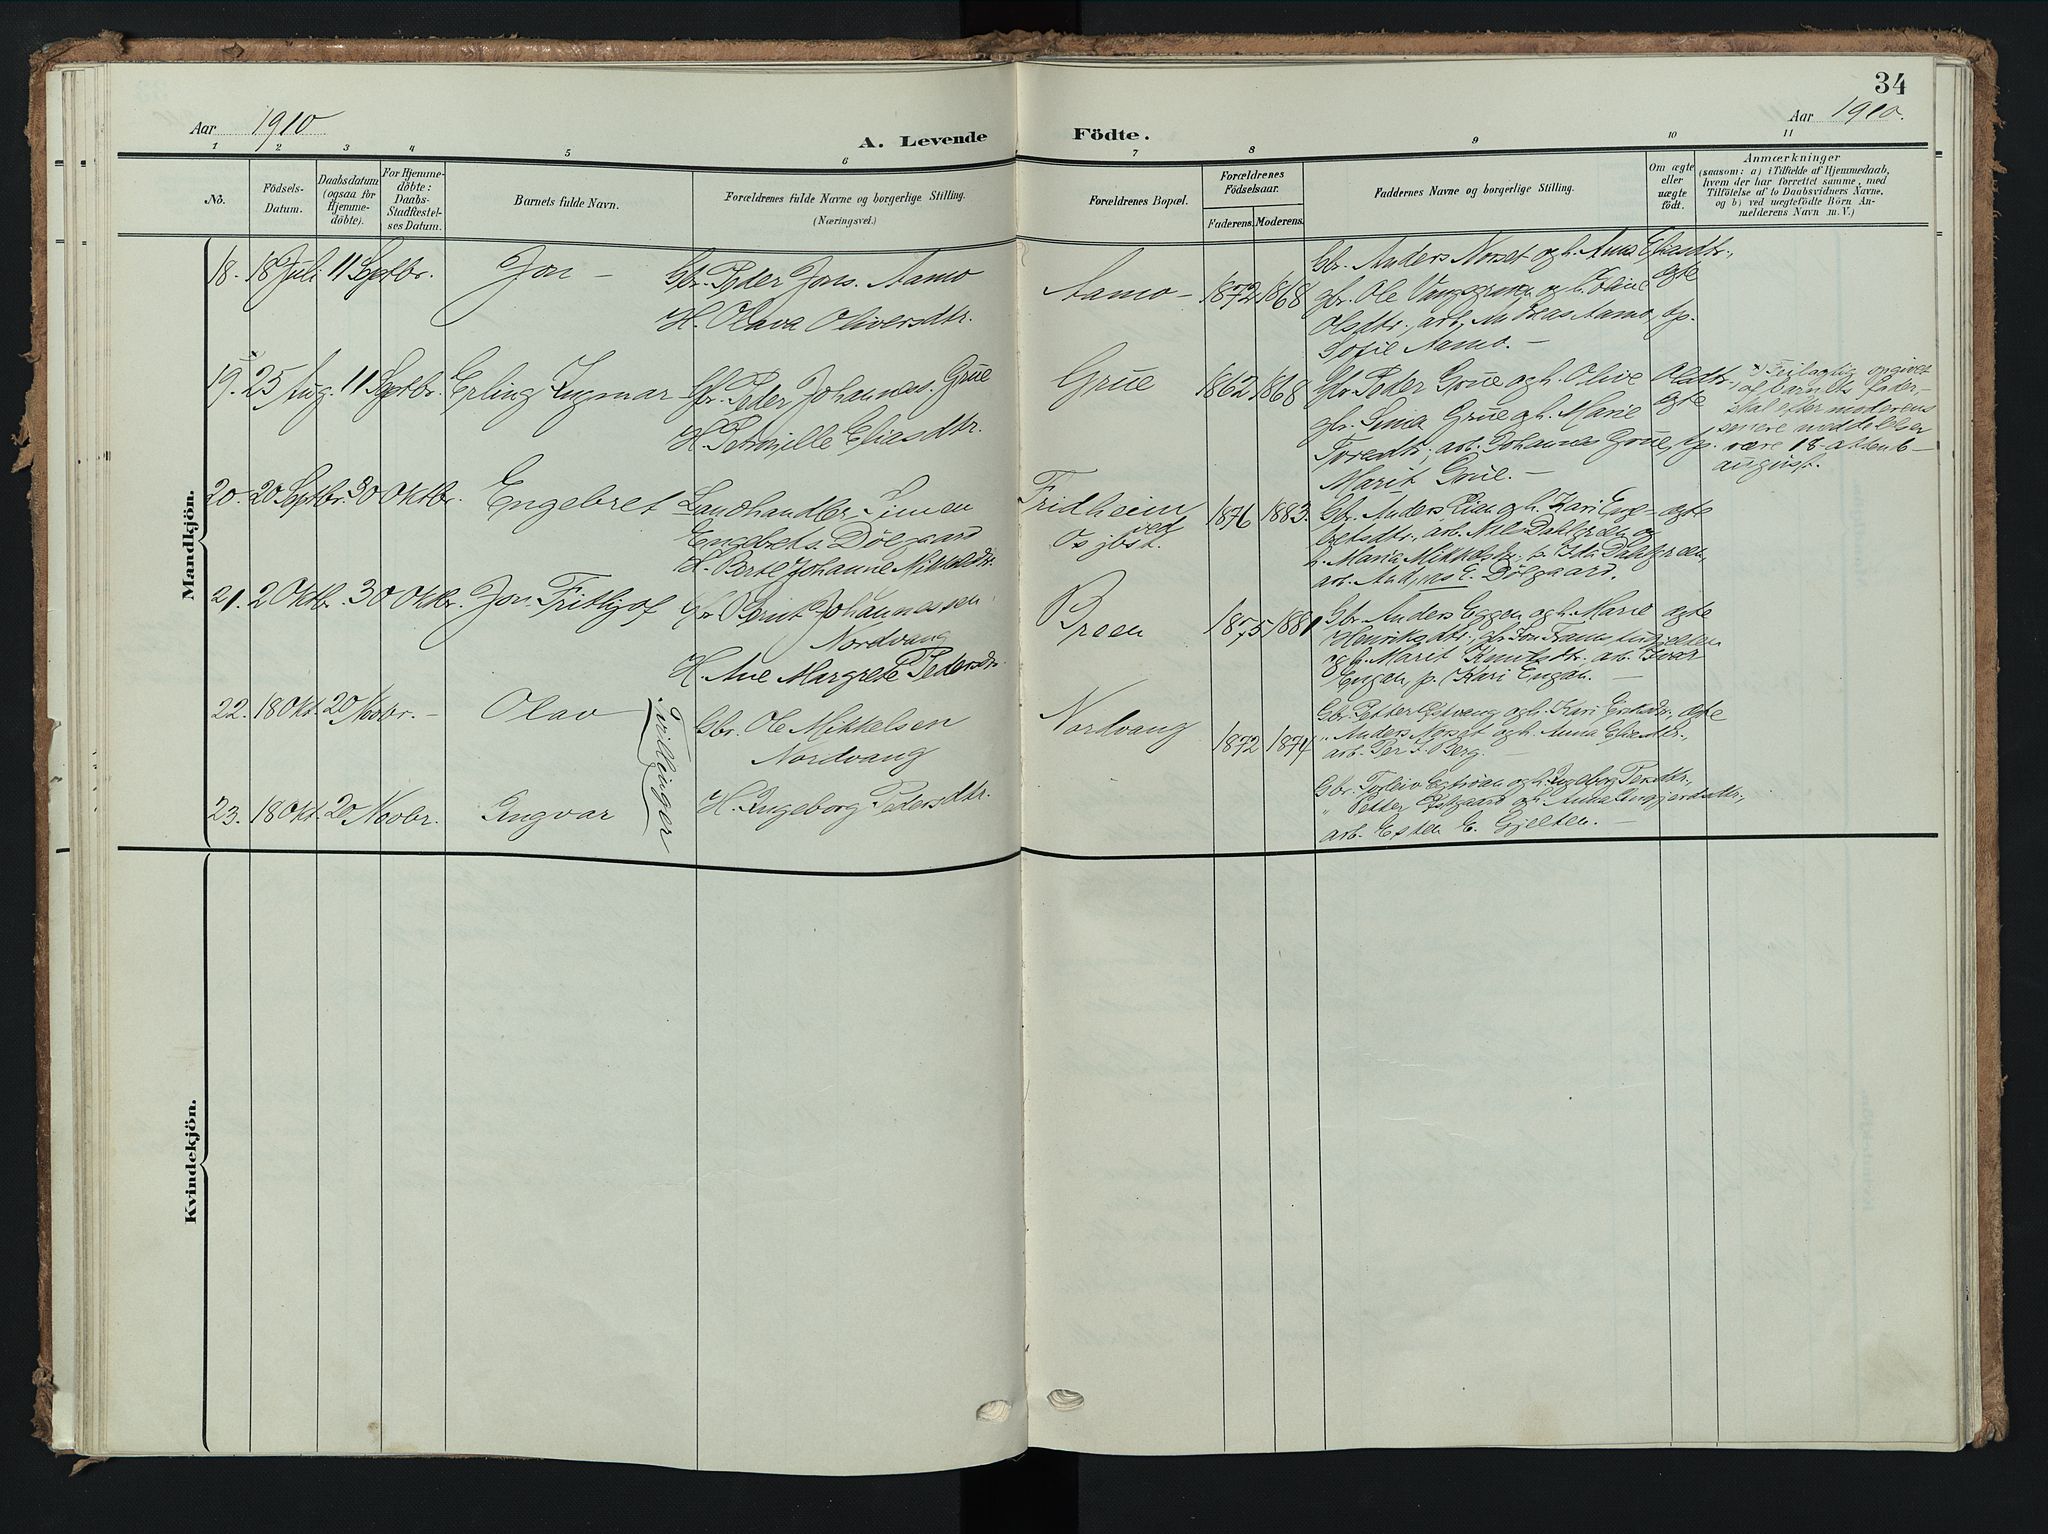 34
Aar 1910
Aar 1910.
A. Levende Födte.
1 2 3 4 5 6 7 8 9 10 11
No.
Födsels-
Datum.
Daabsdatum
(ogsaa for
Hjemme-
döbte).
For Hjemme-
döbte:
Daabs-
Stadfæstel-
ses Datum.
Barnets fulde Navn.
Forældrenes fulde Navne og borgerlige Stilling.
(Næringsvei.)
Forældrenes Bopæl.
Forældrenes
Födselsaar.
Faderens. Moderens.
Faddernes Navne og borgerlige Stilling.
Om ægte
eller
uægte
födt.
Anmærkninger
(saasom: a) i Tilfælde af Hjemmedaab,
hvem der har forrettet samme, med
Tilföielse af to Daabsvidners Navne,
og b) ved uegtefödte Börn An-
melderens Navn m. V.)
Mandkjön.
18. 18 Juli 11 Septbr. Jon -
Gbr. Peder Jons. Aamo
H. Olava Oliversdtr.
Aamo - 1872 1868
Gbr. Anders Norset og h. Anna Eliasdtr., egte
gbr. Ole Vangsgraven og h. Eline
Olsdtr., arb. Andreas Aamo, p.
Sofie Aamo. -
19. 25 Aug. 11 Septbr. Erling Ingmar
Gbr. Peder Johannes. Grue
H. Petronille Eliasdtr.
Grue 1862 1868
Gbr. Peder Grue og h. Olive Olsdtr., egte
gbr. Sima Grue og h. Marie
Toredtr., arb. Johannes Grue, p.
Marit Grue. -
x) Feilagtig opgivet
af barnets fader,
skal efter moderens
senere meddelelser
være 18 - attende -
august.
20. 20 Septbr. 30 Oktbr. Engebret
Landhandler Simen
Engebrets. Dølgaard
H. Berte Johanne Mikkelsdtr.
Fridheim
ved
Os jbst. 1876 1883.
Gbr. Anders Lian og h. Kari Enge- egte
bretsdtr., arb. Nils Dahlgren og
h. Maria Mikkelsdtr., p. Ida Dahlgren,
arb. Andreas E. Dølgaard.
21. 2 Oktbr. 30 Oktbr. Jon Frithjof
Gbr. Bernt Johannessen
Nordvang
H. Ane Margrete Pedersdtr.
Breen 1875 1881
Gbr. Anders Eggen og h. Marie egte
Henriksdtr., gbr. Jon
og h. Marit Knutsdtr., arb. Ivar
Engan, p. Kari Engan. -
22. 18 Okt. 20 Novbr. - Olav
Tvillinger
Gbr. Ole Mikkelsen
Nordvang
H. Ingeborg Pedersdtr.
Nordvang 1872 1874
Gbr. Petter Estvang og h. Kari Ersdtr., egte
" Anders Norset og h. Anna Eliasdtr.,
arb. Per J. Berg. -
23. 18 Okt. 20 Novbr. Ingvar
Gbr. Torleiv og h. Ingeborg Persdtr.,
" Petter og h. Anna Ingjerdsdtr.,
arb. Esten E. Gjelten. -
Kvindekjön.